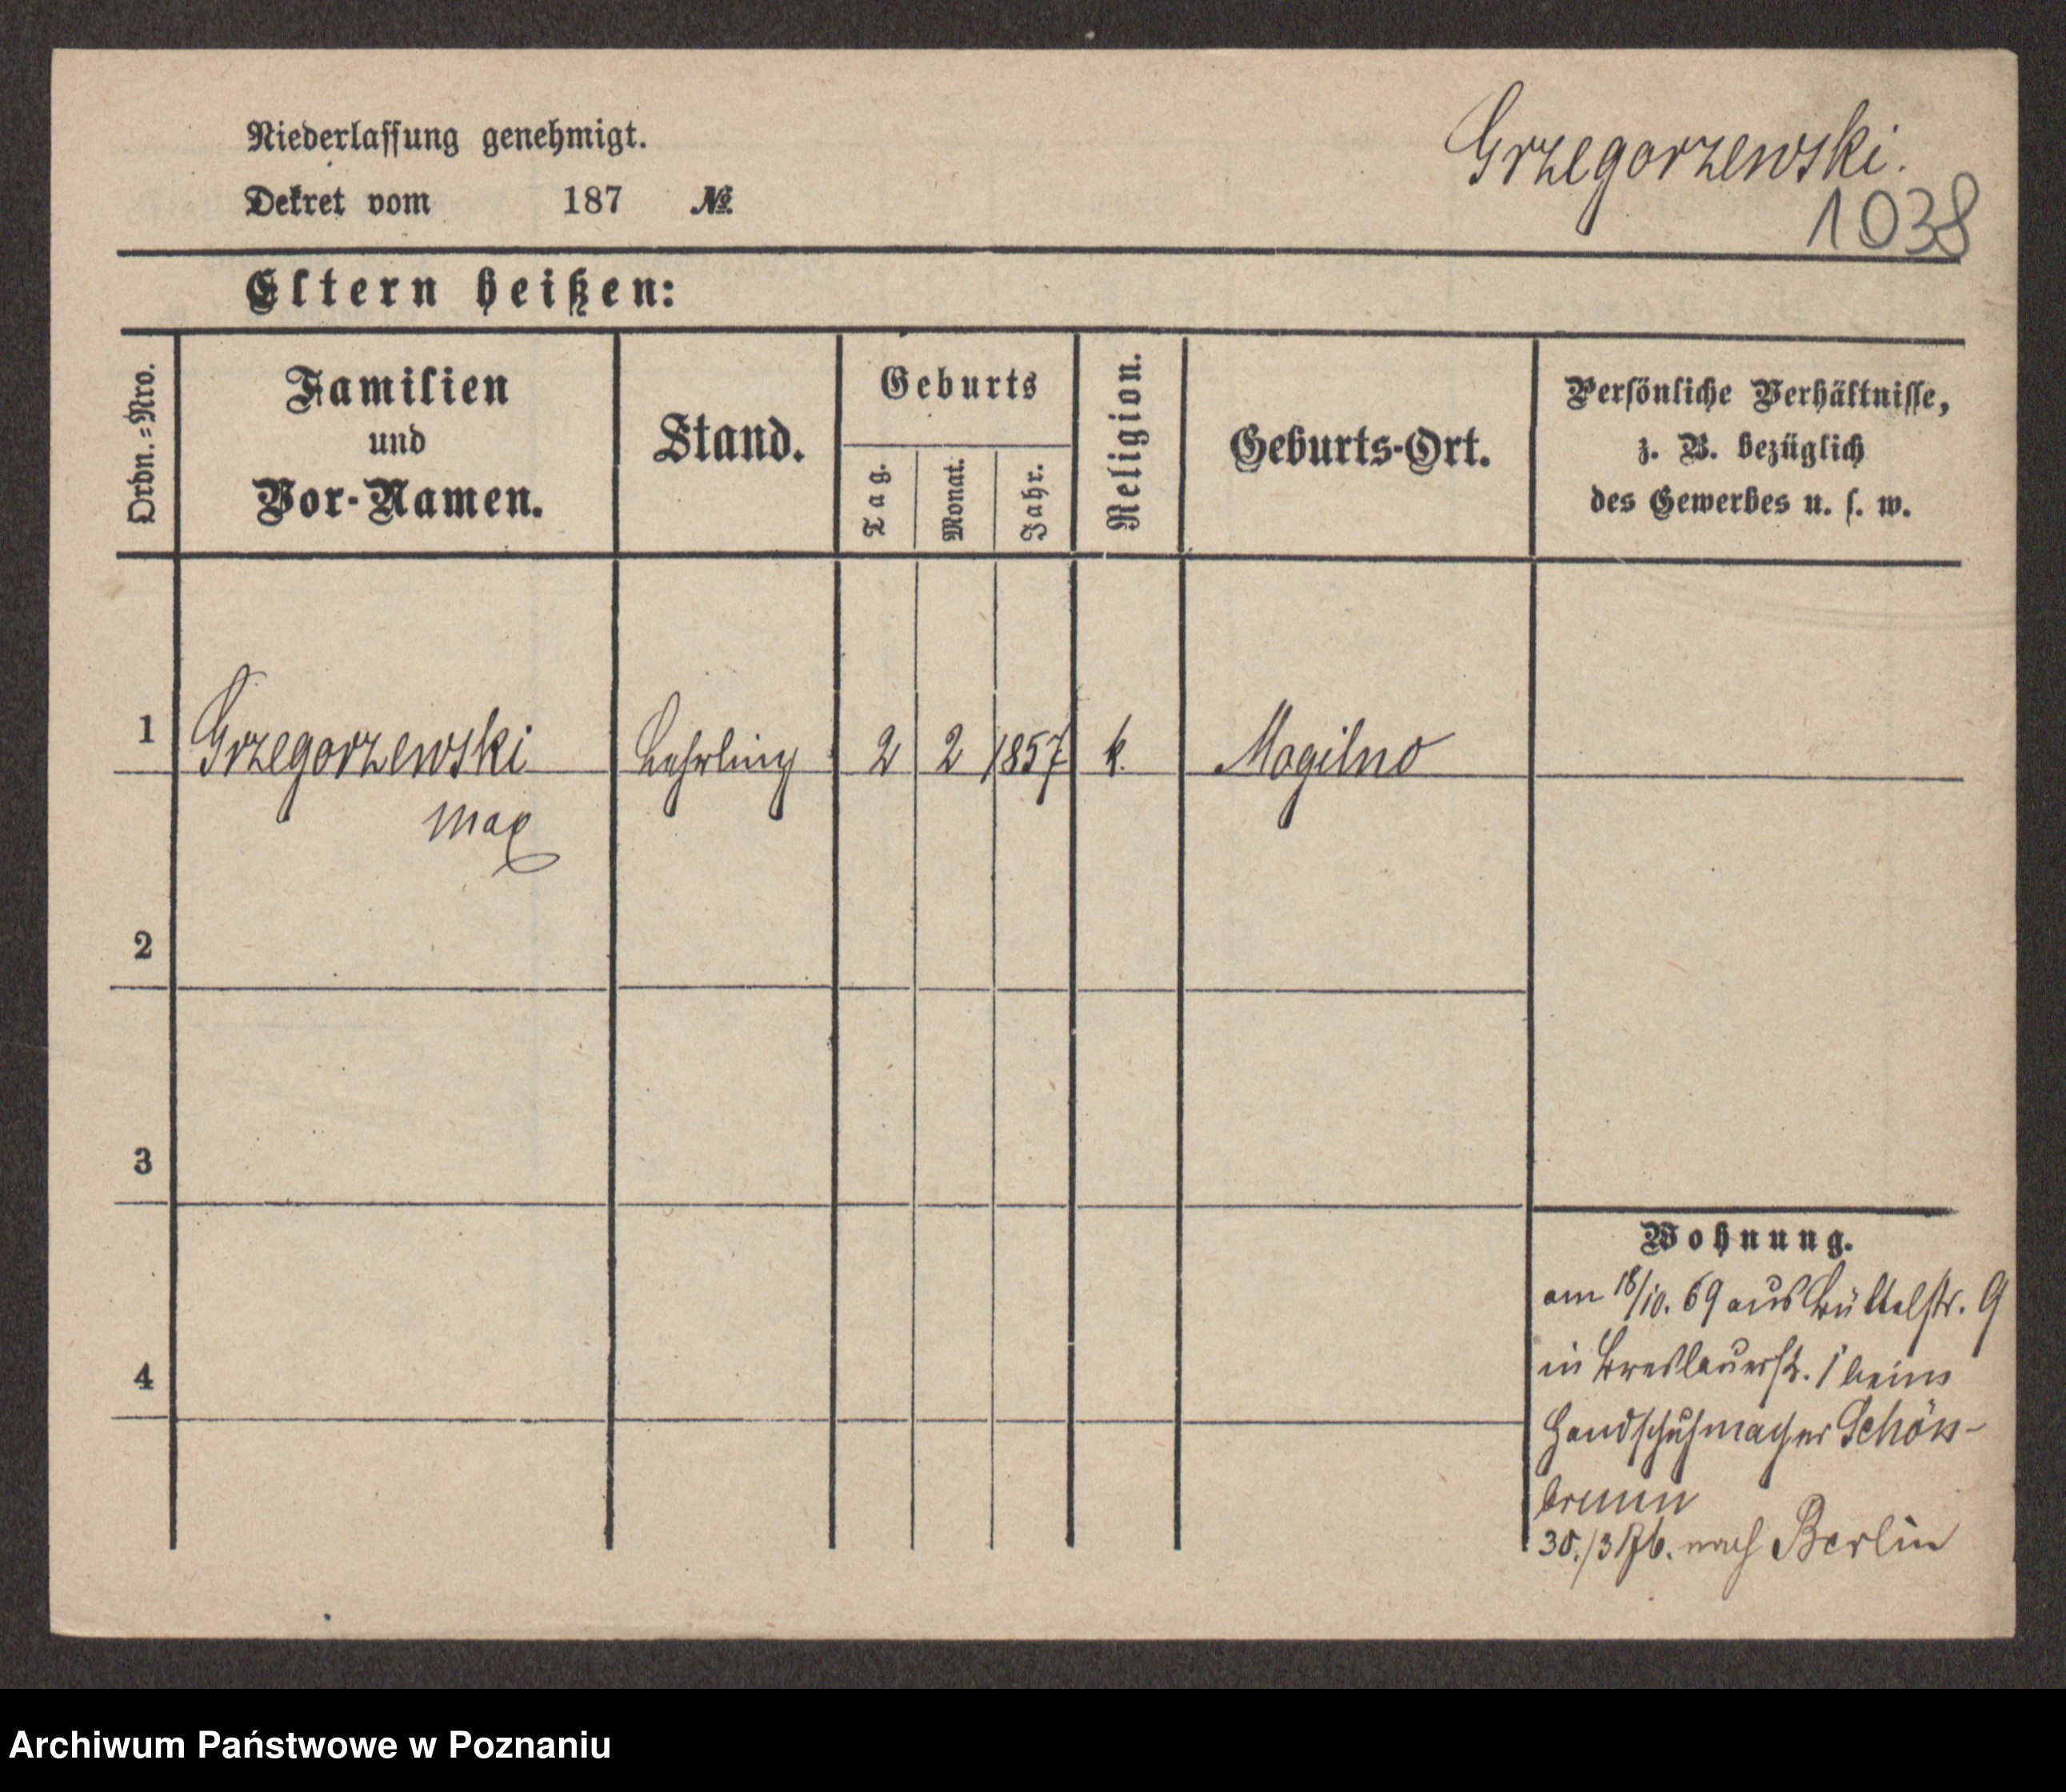 Niederlassung genehmigt.
Grzegorzewski.
Dekret vom 187 №
1038
Eltern heißen:
Ordn.=Nro.
Familien
und
Vor-Namen.
Stand.
Geburts
Tag.
Monat.
Jahr.
Religion.
Geburts-Ort.
Persönliche Verhältnisse,
z. B. bezüglich
des Gewerbes u. s. w.
1 Grzegorzewski Lehrling 2 2 1857 k. Mogilno
Max
2
3
Wohnung.
am 18/10. 69 aus Büttelstr. 9
in Breslauerstr. 1 beim
4
Handschuhmacher Schön-
brunn
30./3 76. nach Berlin
Archiwum Państwowe w Poznaniu